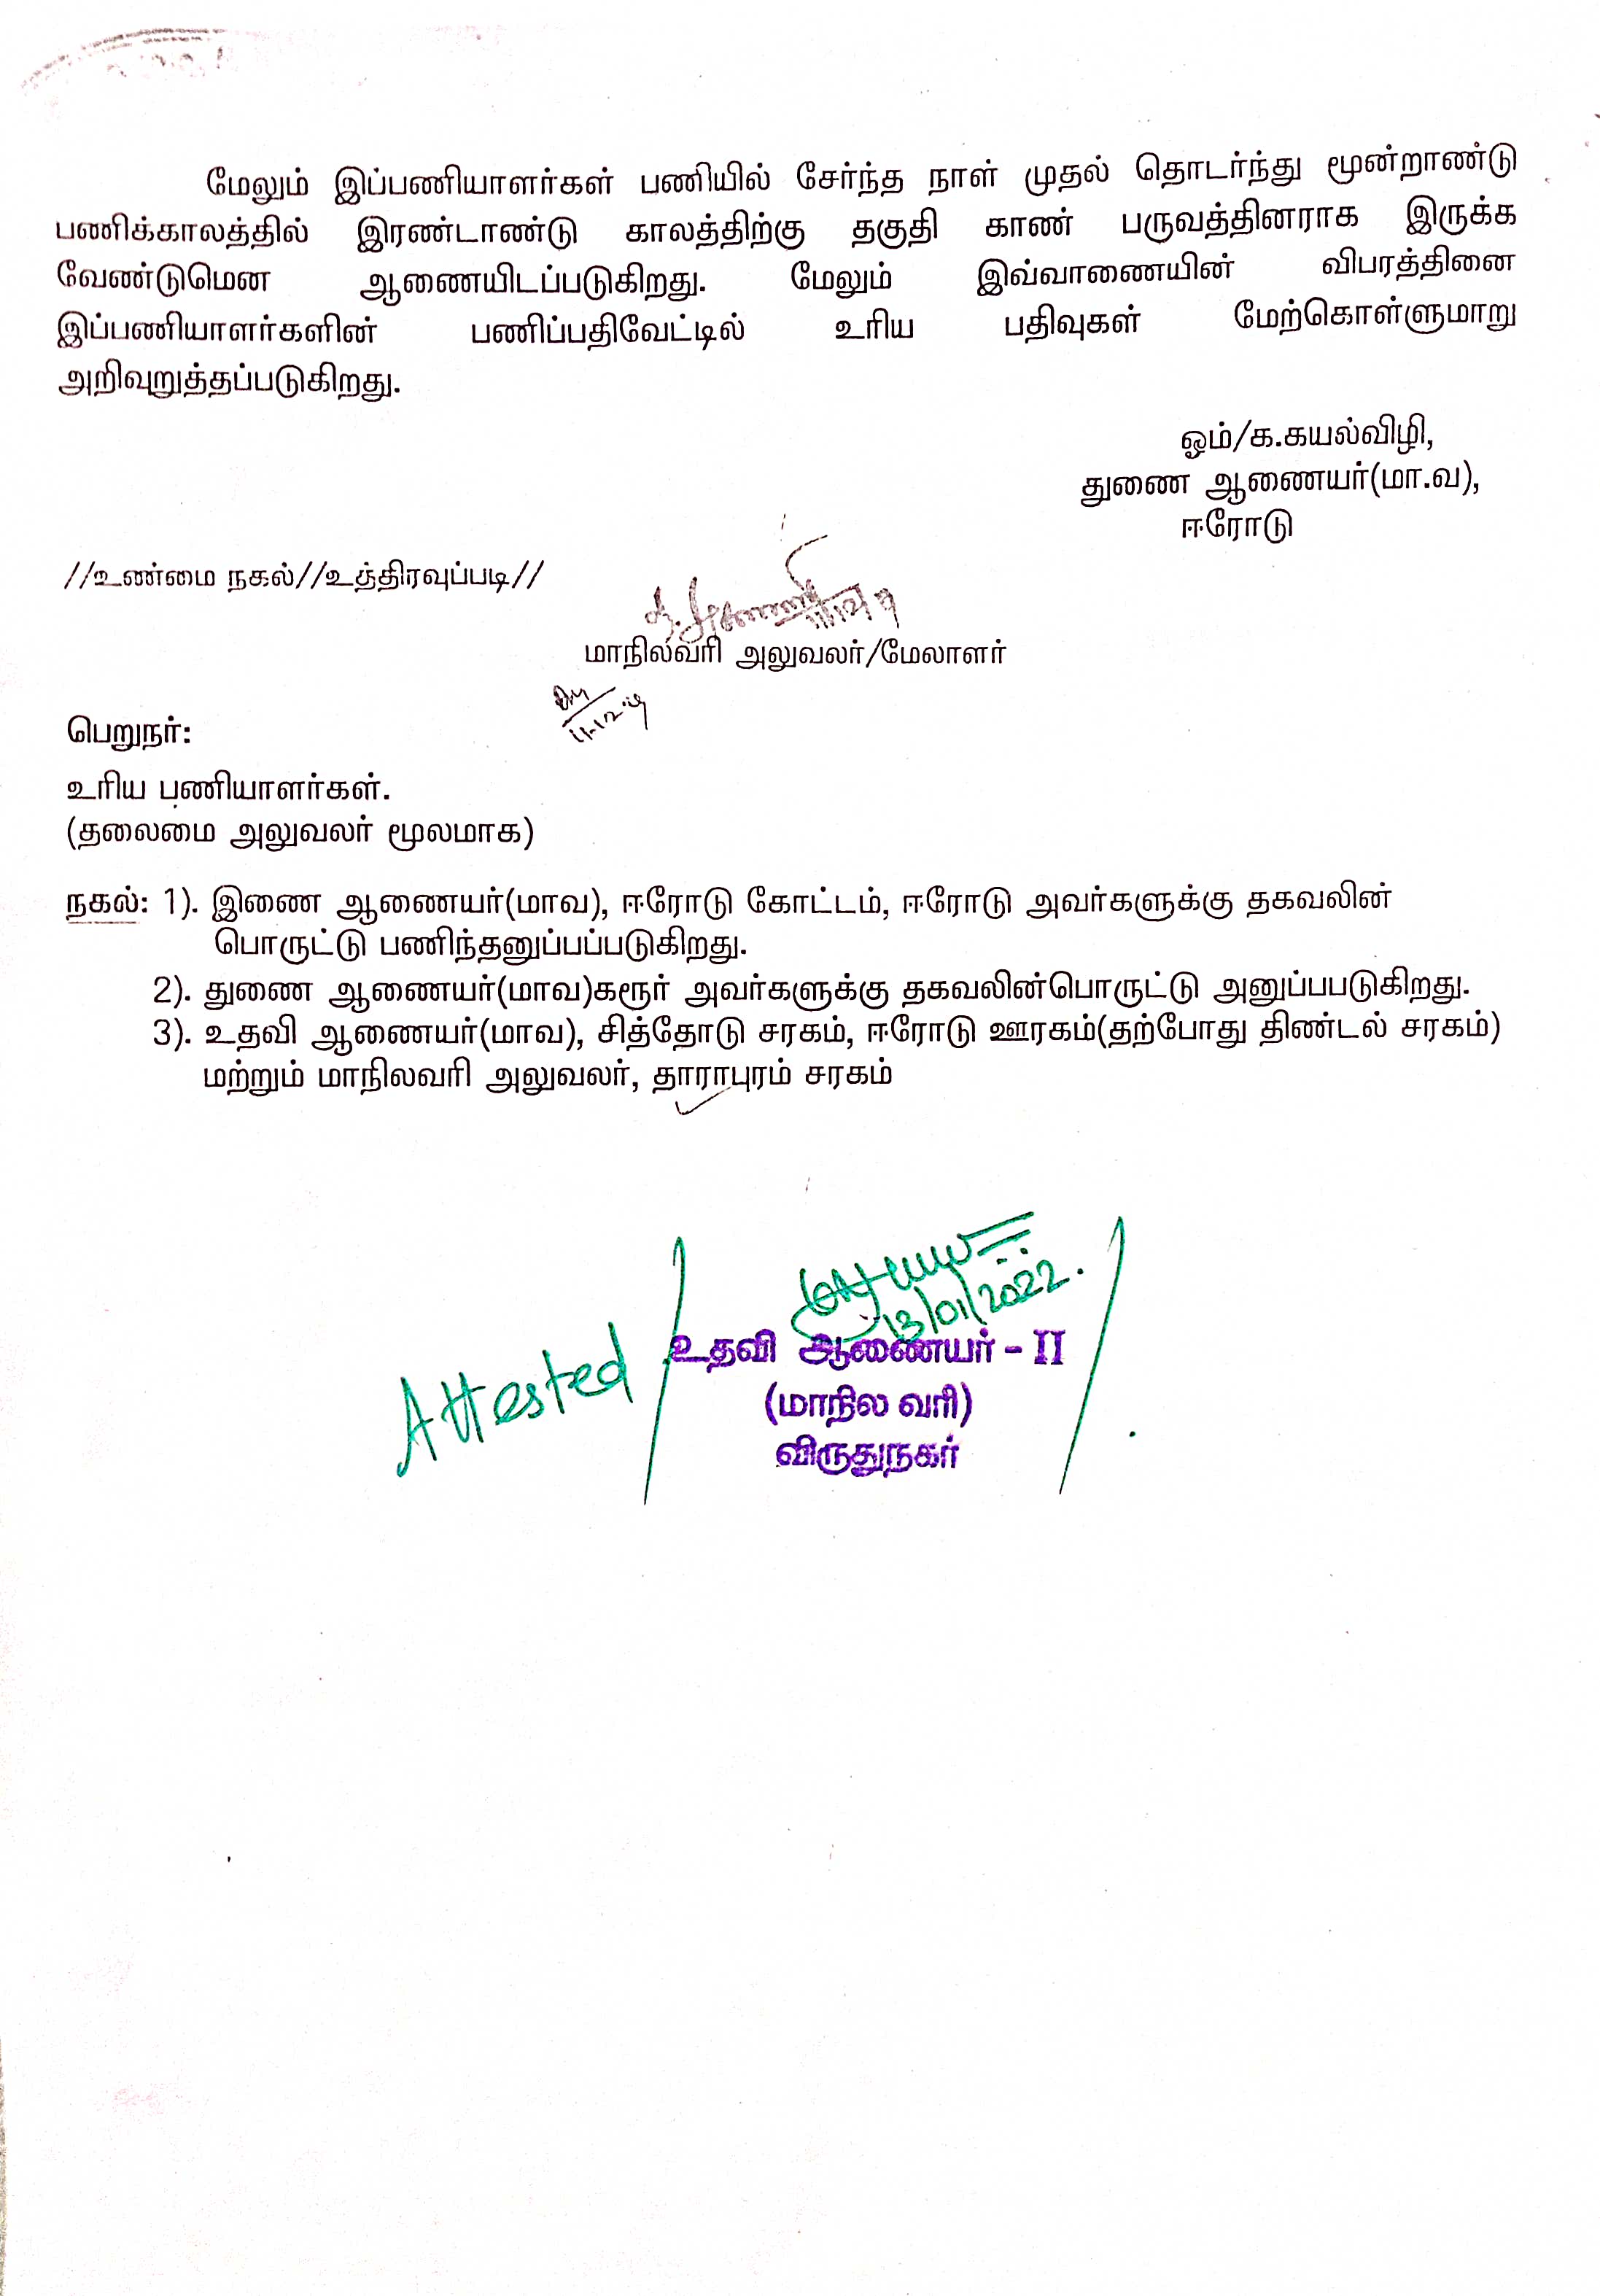 மேலும் இப்பணியாளர்கள் பணியில் சேர்ந்த நாள் முதல் தொடர்ந்து மூன்றாண்டு
பணிக்காலத்தில் இரண்டாண்டு காலத்திற்கு தகுதி காண் பருவத்தினராக இருக்க
வேண்டுமென ஆணையிடப்படுகிறது. மேலும் இவ்வாணையின் விபரத்தினை
இப்பணியாளர்களின் பணிப்பதிவேட்டில் உரிய பதிவுகள் மேற்கொள்ளுமாறு
அறிவுறுத்தப்படுகிறது.
ஓம்/க.கயல்விழி,
துணை ஆணையர்(மா.வ),
ஈரோடு
//உண்மை நகல்//உத்திரவுப்படி//
மாநிலவரி அலுவலர்/மேலாளர்
பெறுநர்:
உரிய பணியாளர்கள்.
(தலைமை அலுவலர் மூலமாக)
நகல்: 1). இணை ஆணையர்(மாவ), ஈரோடு கோட்டம், ஈரோடு அவர்களுக்கு தகவலின்
பொருட்டு பணிந்தனுப்பப்படுகிறது.
2). துணை ஆணையர்(மாவ)கரூர் அவர்களுக்கு தகவலின்பொருட்டு அனுப்பபடுகிறது.
3). உதவி ஆணையர்(மாவ), சித்தோடு சரகம், ஈரோடு ஊரகம்(தற்போது திண்டல் சரகம்)
மற்றும் மாநிலவரி அலுவலர், தாராபுரம் சரகம்
13/01/2022.
Attested
உதவி ஆணையர் - II
(மாநில வரி)
விருதுநகர்